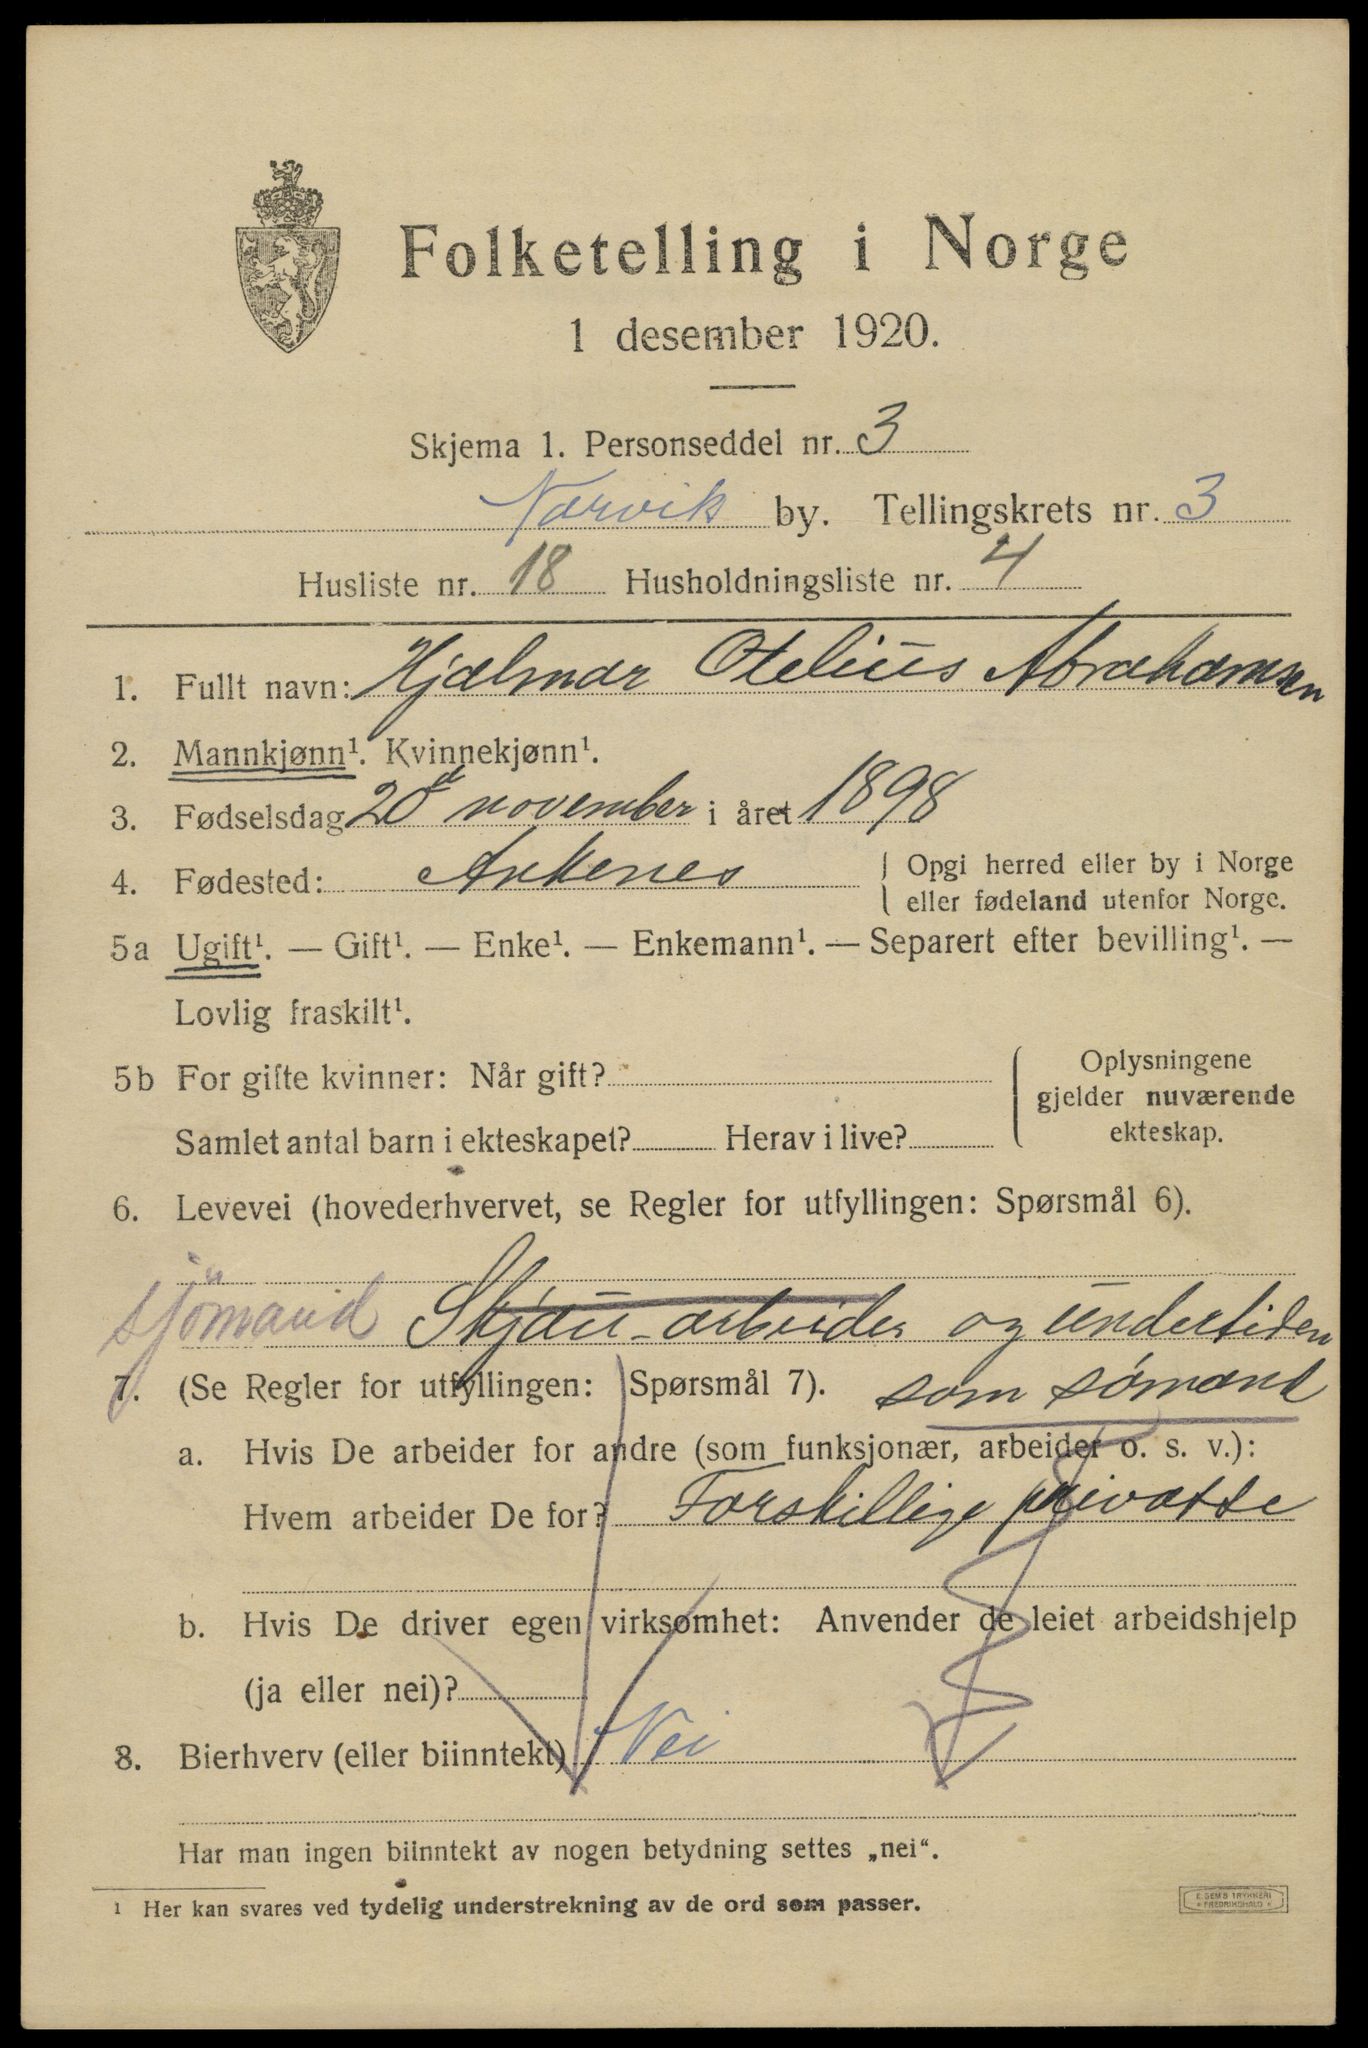 Folketelling i Norge
1 desember 1920.
Skjema 1. Personseddel nr. 3
Narvik by. Tellingskrets nr. 3
Husliste nr. 18 Husholdningsliste nr. 4
1. Fullt navn: Hjalmar Otelius Abrahamsen
2. Mannkjønn¹. Kvinnekjønn¹.
3. Fødselsdag 20 november i året 1898
4. Fødested: Ankenes
Opgi herred eller by i Norge
eller fødeland utenfor Norge.
5a Ugift¹. — Gift¹. — Enke¹. — Enkemann¹. — Separert efter bevilling¹. —
Lovlig fraskilt¹.
5b For gifte kvinner: Når gift?
Samlet antal barn i ekteskapet? Herav i live?
Oplysningene
gjelder nuværende
ekteskap.
6. Levevei (hovederhvervet, se Regler for utfyllingen: Spørsmål 6).
sjömand Skjau-arbeider og undertiden
7. (Se Regler for utfyllingen: Spørsmål 7). som sömand
a. Hvis De arbeider for andre (som funksjonær, arbeider o. s. v.):
Hvem arbeider De for? Forskillige privatte
b. Hvis De driver egen virksomhet: Anvender de leiet arbeidshjelp
(ja eller nei)?
8. Bierhverv (eller biinntekt) Nei
Har man ingen biinntekt av nogen betydning settes „nei“.
¹ Her kan svares ved tydelig understrekning av de ord som passer.
E. SEM'S TRYKKERI
FREDRIKSHALD